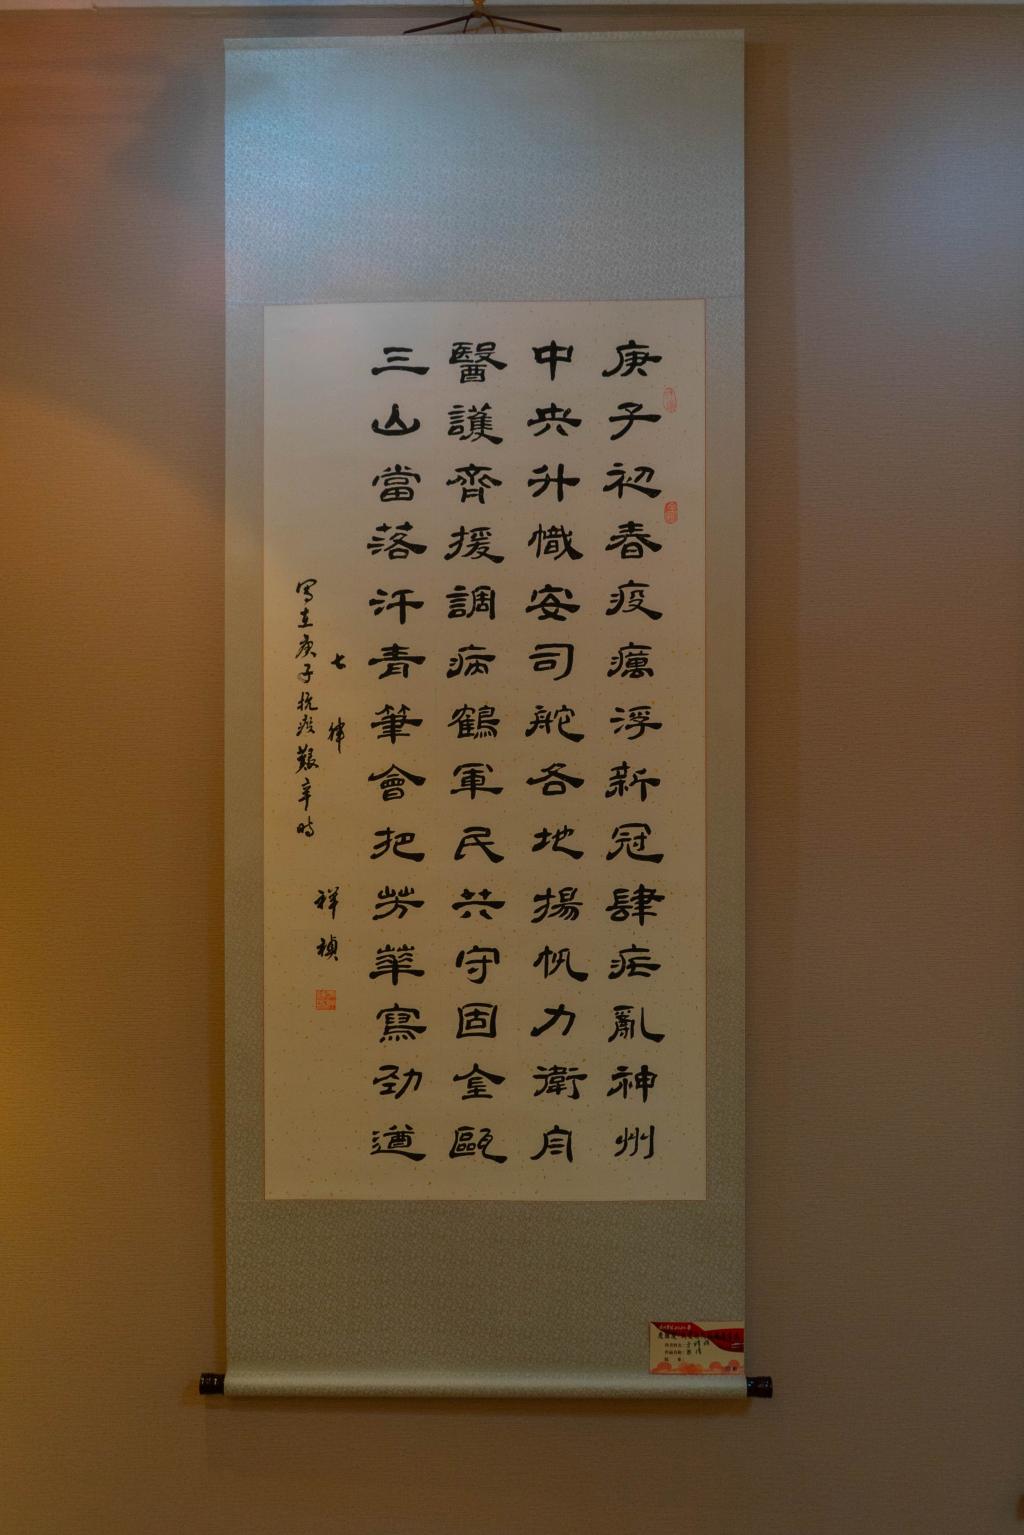 庚子初春疫癘浮新冠肆疟亂神州
中央升幟安司舵各地揚帆力衛舟
醫護齊援調病鶴軍民共守固金甌
三山當落汗青筆會把芳華寫勁遒
七律
寫在庚子抗疫艱辛時
祥禎